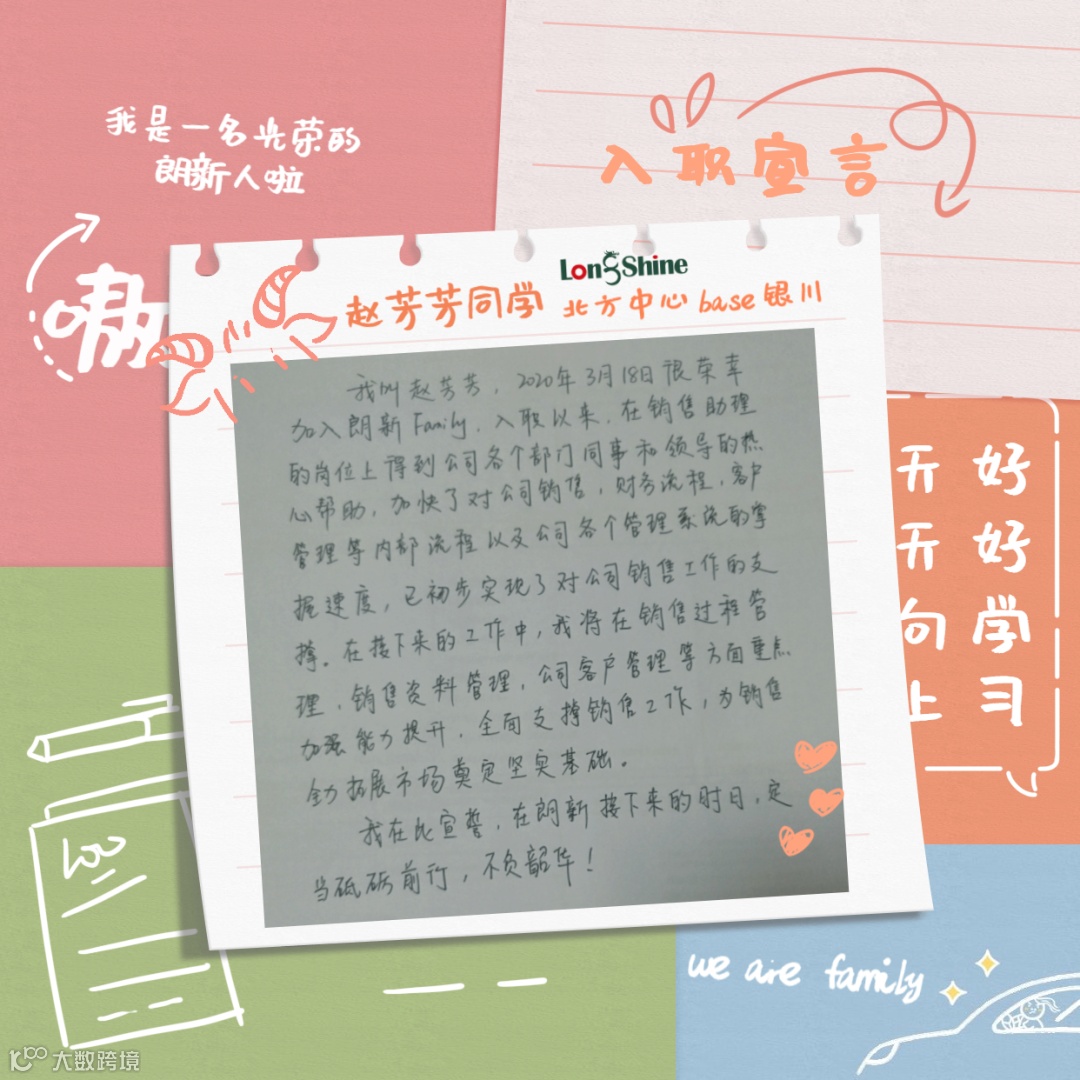 我是一名光荣的
朗新人啦
入职宣言
嗷
LongShine
赵芳芳同学 北方中心 base 银川
我叫赵芳芳，2020年3月18日很荣幸
加入朗新Family，入职以来，在销售助理
的岗位上得到公司各个部门同事和领导的热
心帮助，加快了对公司销售，财务流程，客户
管理等内部流程以及公司各个管理系统的掌
握速度，已初步实现了对公司销售工作的支
撑。在接下来的工作中，我将在销售过程管
理，销售资料管理，公司客户管理等方面重点
加强能力提升，全面支撑销售工作，为销售
全力拓展市场奠定坚实基础。
我在此宣誓，在朗新接下来的时日，定
当砥砺前行，不负韶华！
好好学习
天天向上
100
we are family
大数跨境